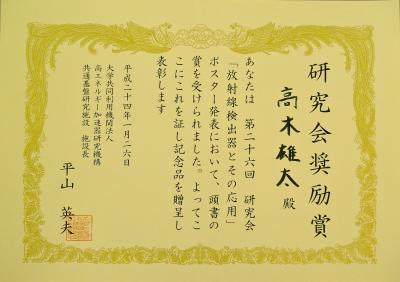 研究会奨励賞
高木雄太 殿
あなたは 第二十六回 研究会
「放射線検出器とその応用」
ポスター発表において、頭書の
賞を受けられました。よってこ
こにこれを証し記念品を贈呈し
表彰します
平成二十四年一月二六日
大学共同利用機関法人
高エネルギー加速器研究機構
共通基盤研究施設 施設長
平山 英夫